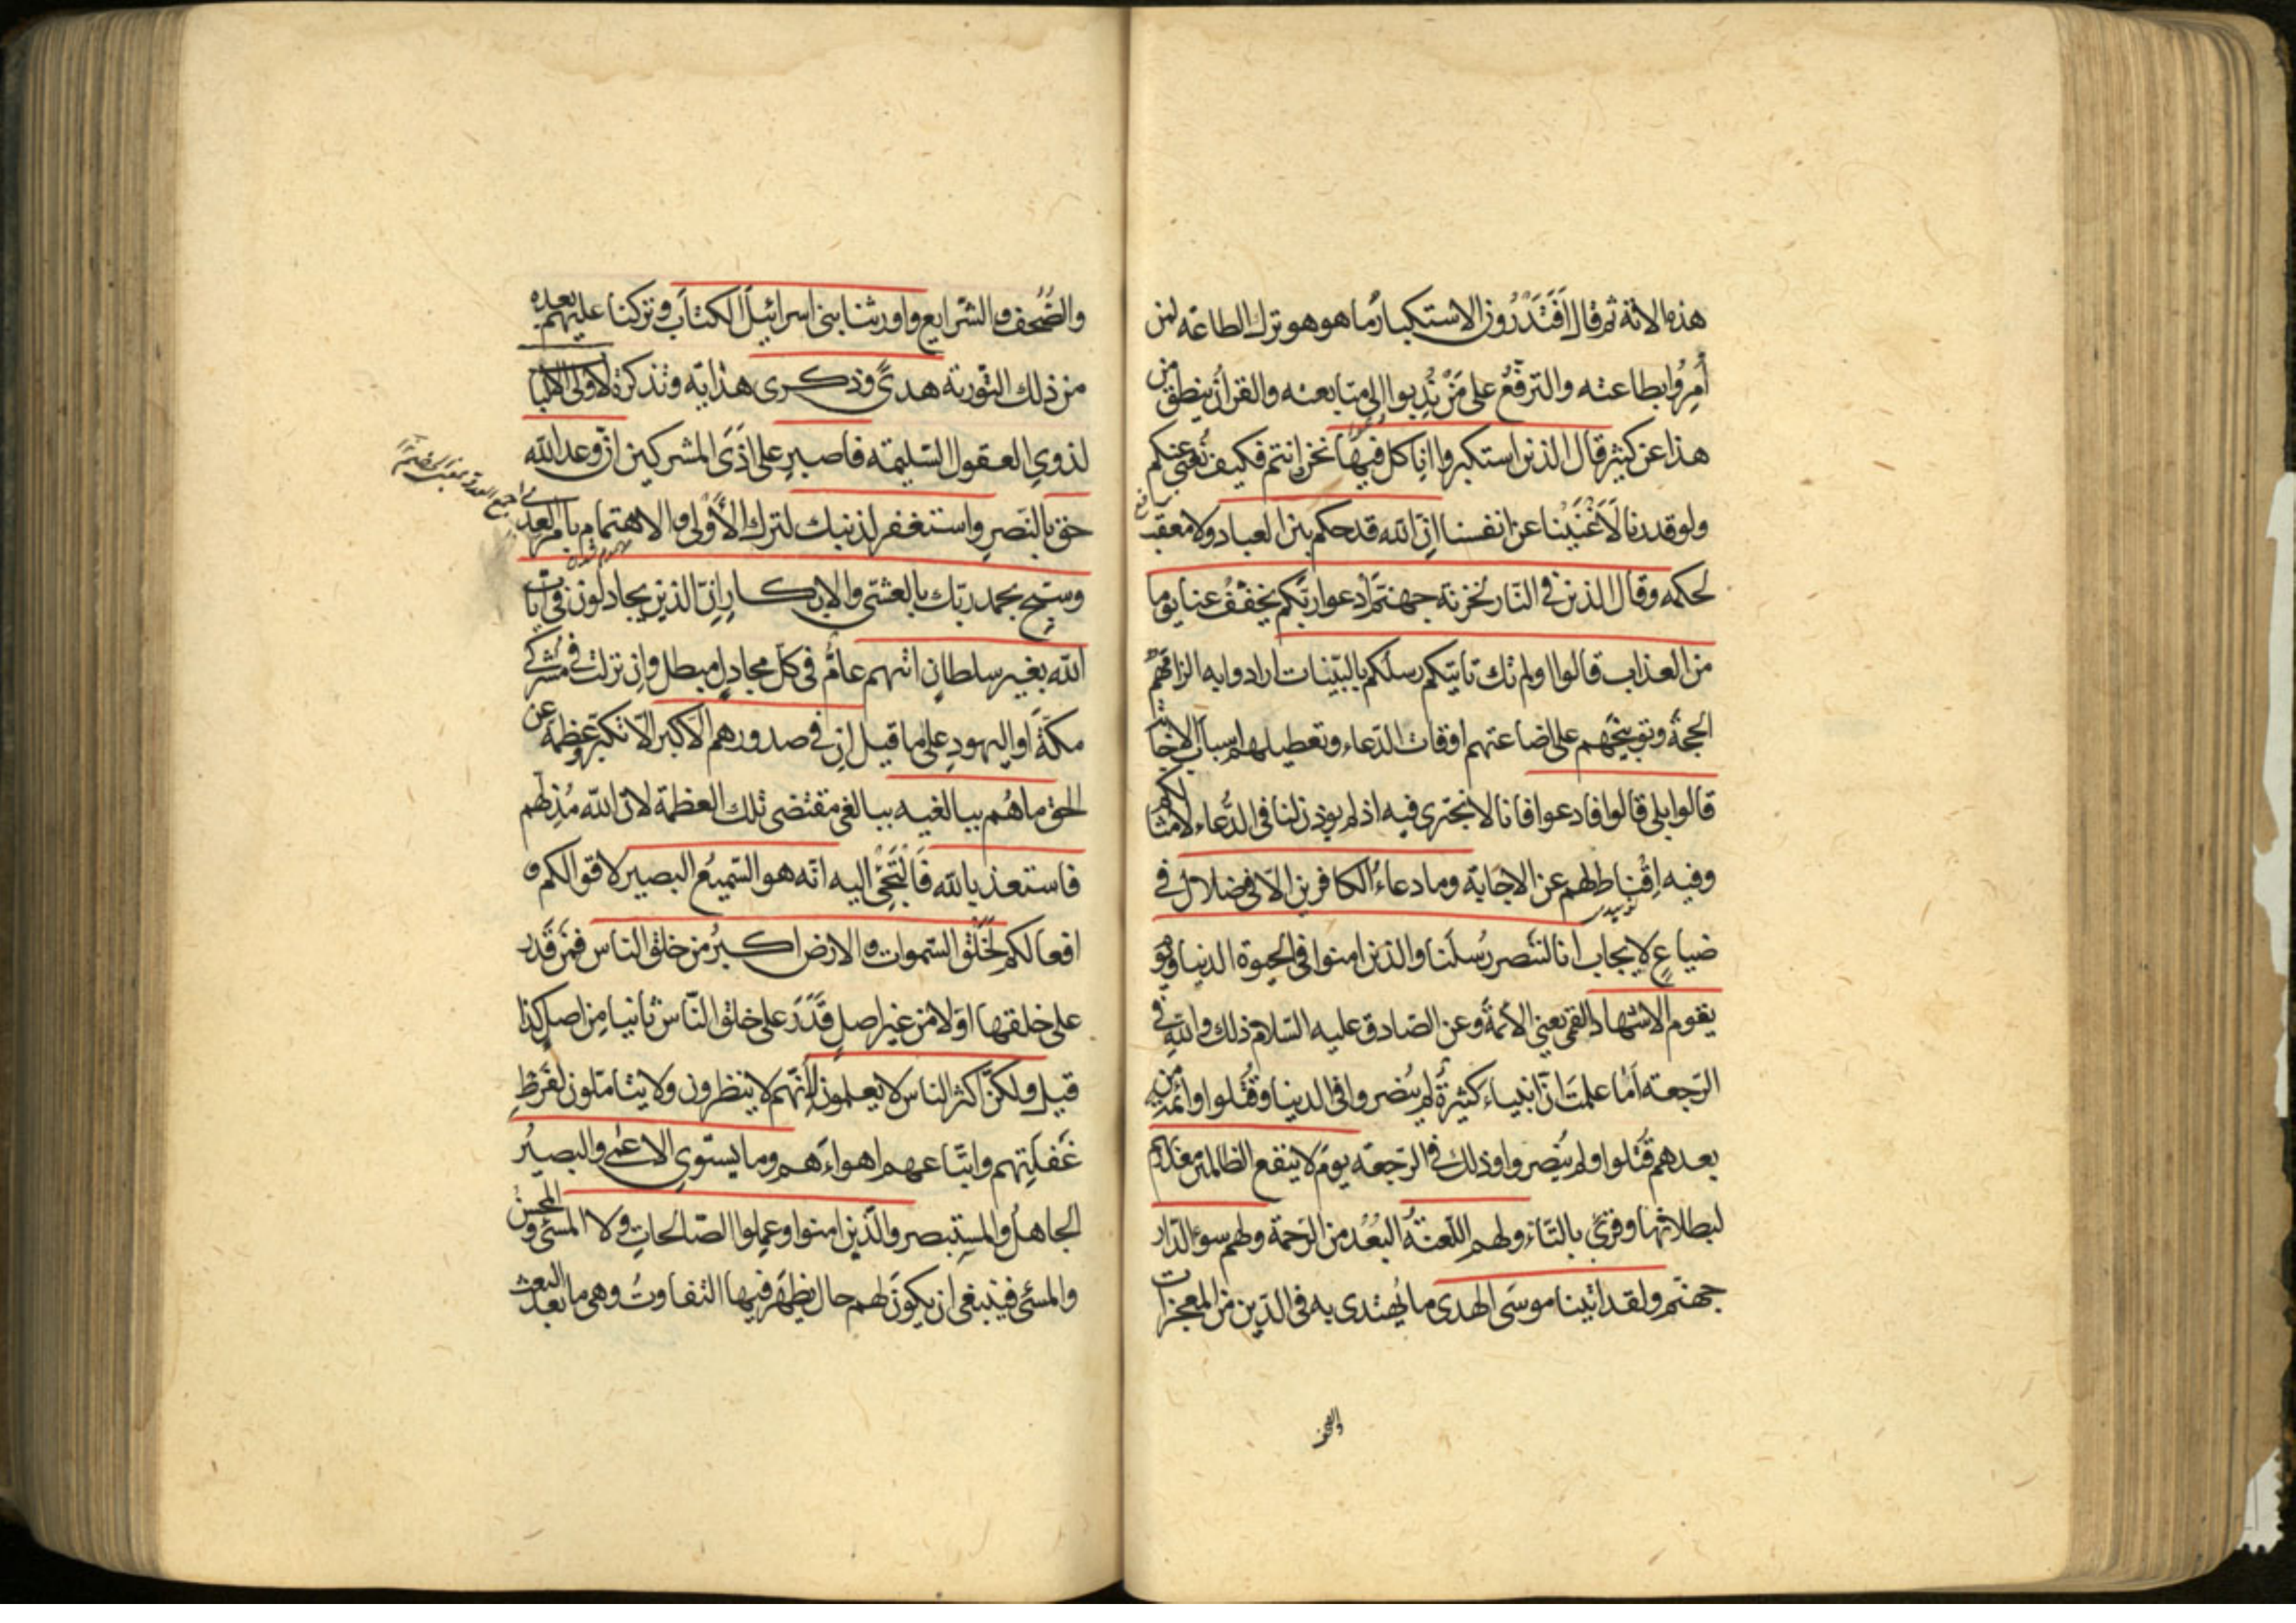 هذه الاية ثم قال افتدرون الاستكبار ما هو هو ترك الطاعة لمن
أمروا بطاعته والترفع على من ندبوا الى متابعته والقران ينطق من
هذا عن كثير قال الذين استكبروا انا كل فيها نحن انتم فكيف نغنى عنكم
ولو قدرنا لأغنينا عن انفسنا ان الله قد حكم بين العباد ولا معقب
لحكمه وقال الذين فى النار لخزنة جهنم ادعوا ربكم يخفف عنا يوما
من العذاب قالوا اولم تك تأتيكم رسلكم بالبينات ارادوا به الزامهم
الحجة وتوبيخهم على اضاعتهم اوقات الدعاء وتعطيلهم اسباب الاجابة
قالوا بلى قالوا فادعوا فانا لا نجترى فيه اذ لم يؤذن لنا فى الدعاء لامثالكم
وفيه اقناط لهم عن الاجابة وما دعاء الكافرين الا فى ضلال فى
ضياع لا يجاب انا لننصر رسلنا والذين امنوا فى الحيوة الدنيا ويوم
يقوم الاشهاد القمى يعنى الائمة وعن الصادق عليه السلام ذلك والله فى
الرجعة اما علمت ان انبياء كثيرة لم ينصروا فى الدنيا وقتلوا وائمة من
بعدهم قتلوا ولم ينصروا وذلك فى الرجعة يوم لا ينفع الظالمين معذرتهم
لبطلانها وقرئ بالتاء ولهم اللعنة البعد من الرحمة ولهم سوء الدار
جهنم ولقد اتينا موسى الهدى ما يهتدى به فى الدين من المعجزات
والصحف
والصحف والشرايع واورثنا بنى اسرائيل الكتاب وتركنا عليهم بعده
من ذلك التورية هدى وذكرى هداية وتذكرة لاولى الالباب
لذوى العقول السليمة فاصبر على اذى المشركين ان وعد الله
حق بالنصر واستغفر لذنبك لترك الأولى والاهتمام بامر العدى
وسبح بحمد ربك بالعشى والابكار ان الذين يجادلون فى ايات
الله بغير سلطان اتيهم عام فى كل مجادل مبطل وان نزلت فى مشركى
مكة او اليهود على ما قيل ان فى صدورهم الا كبر الا تكبر وعظمة عن
الحق ما هم ببالغيه ببالغى مقتضى تلك العظمة لان الله مذلهم
فاستعذ بالله فالتجئ اليه انه هو السميع البصير لاقوالكم و
افعالكم لخلق السموات والارض اكبر من خلق الناس فمن قدر
على خلقها اولا من غير اصل قدر على خلق الناس ثانيا من اصل كذا
قيل ولكن اكثر الناس لا يعلمون لانهم لا ينظرون ولا يتأملون لفرط
غفلتهم واتباعهم اهواءهم وما يستوى الاعمى والبصير
الجاهل والمستبصر والذين امنوا وعملوا الصالحات ولا المسئ والمحسن
والمسئ فينبغى ان يكون لهم حال يظهر فيها التفاوت وهى ما بعد البعث